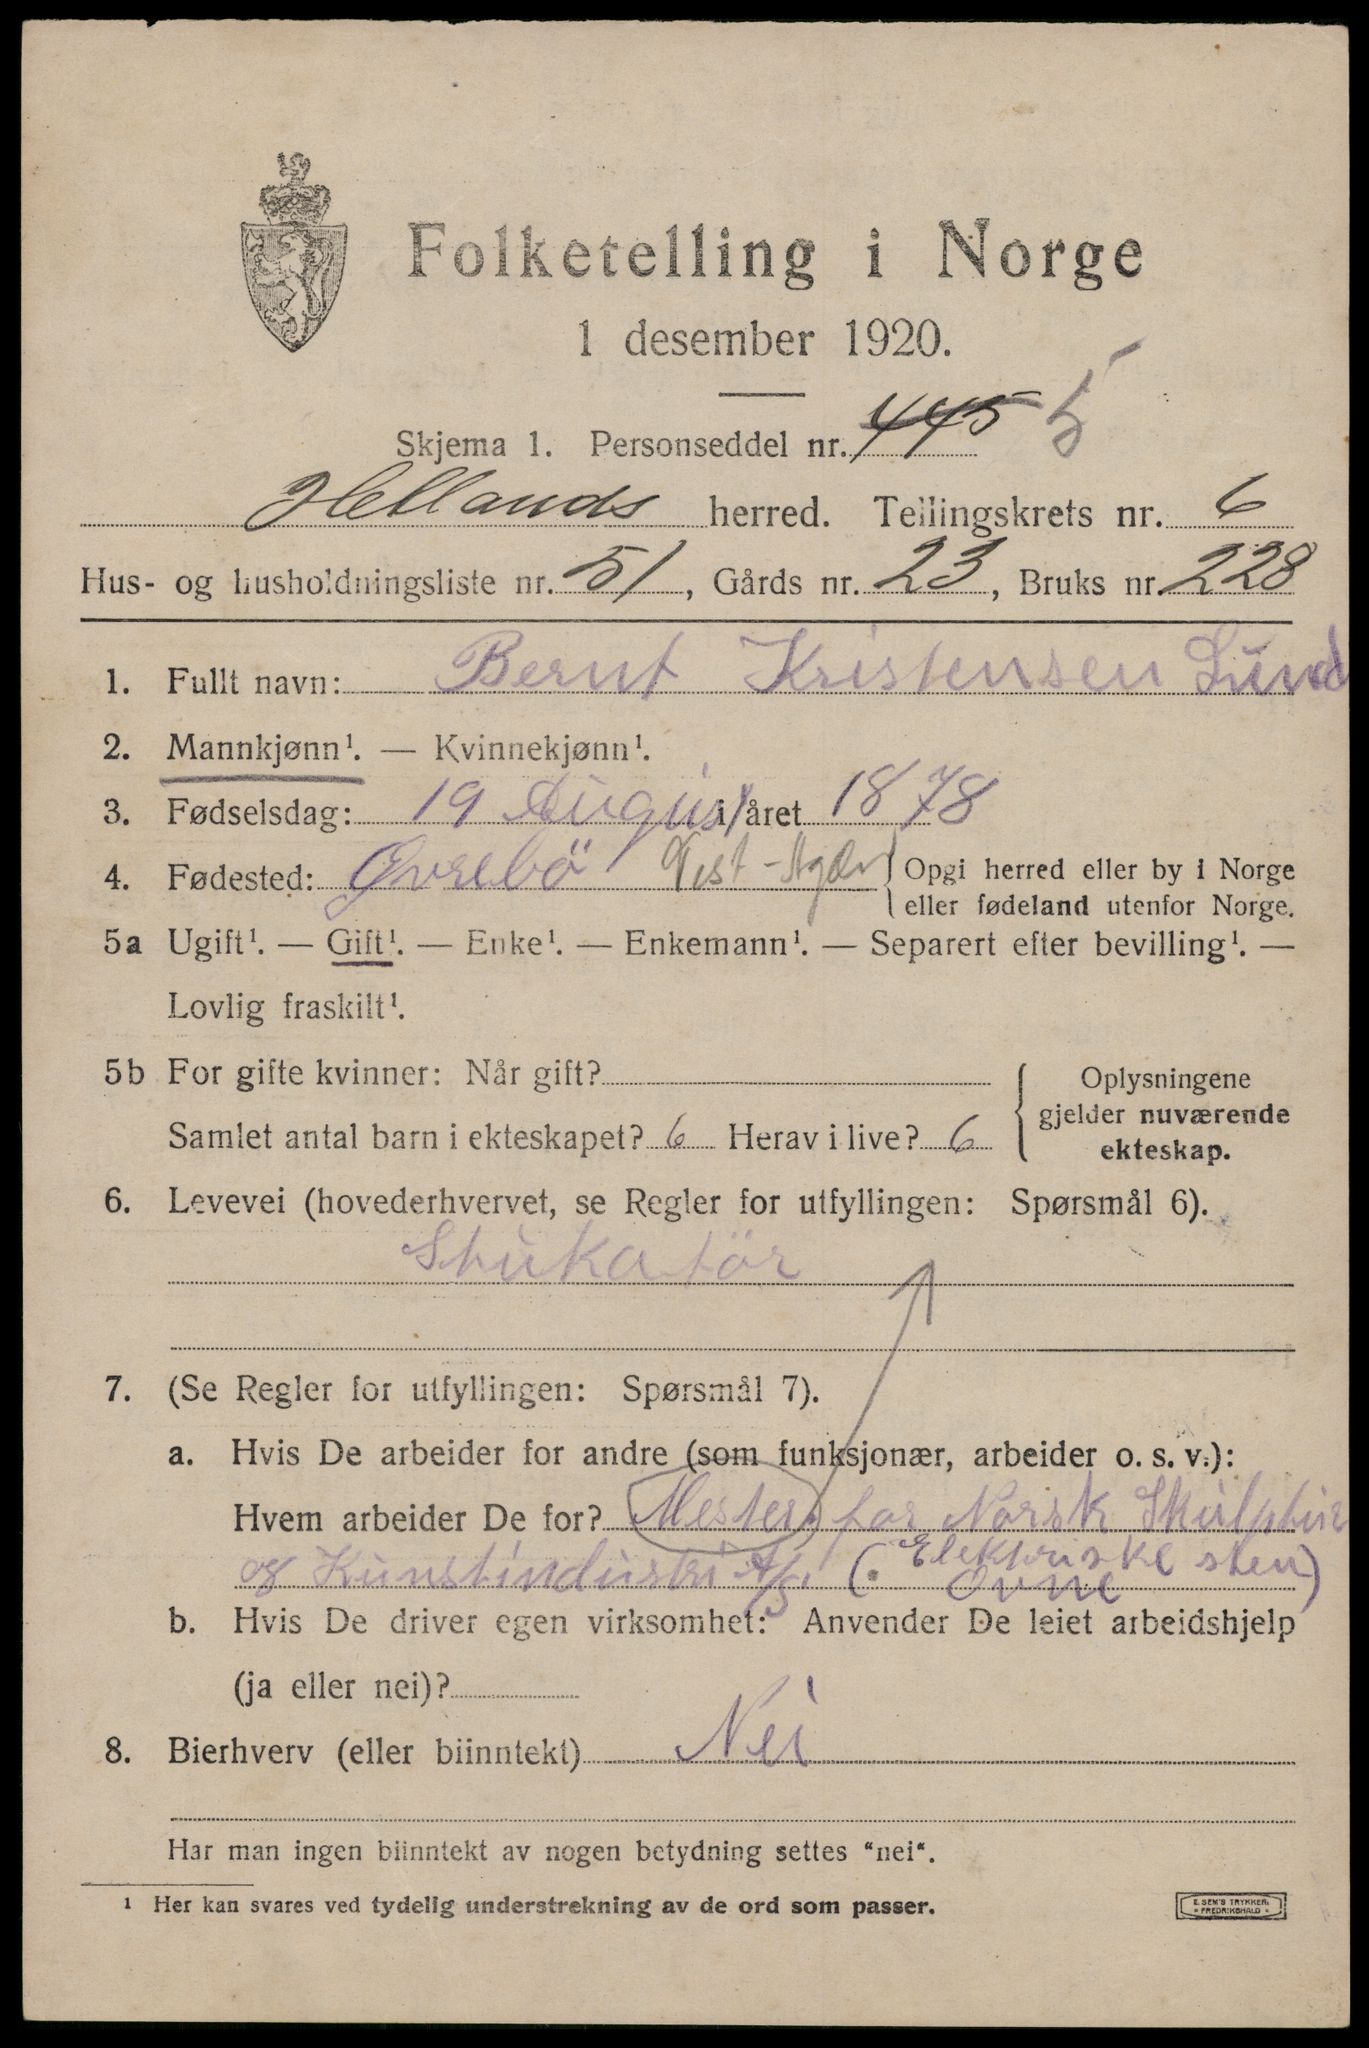 Folketelling i Norge
1 desember 1920.
Skjema 1. Personseddel nr. 445 5
Hetlands herred. Tellingskrets nr. 6
Hus- og husholdningsliste nr. 51, Gårds nr. 23, Bruks nr. 228
1. Fullt navn: Bernt Kristensen Lund
2. Mannkjønn¹. — Kvinnekjønn¹.
3. Fødselsdag: 19 August i året 1878
4. Fødested: Øvrebö Vest-Agder { Opgi herred eller by i Norge
eller fødeland utenfor Norge.
5a Ugift¹. — Gift¹. — Enke¹. — Enkemann¹. — Separert efter bevilling¹. —
Lovlig fraskilt¹.
5b For gifte kvinner: Når gift?
Samlet antal barn i ekteskapet? 6 Herav i live? 6
Oplysningene
gjelder nuværende
ekteskap.
6. Levevei (hovederhvervet, se Regler for utfyllingen: Spørsmål 6).
Stukatör
7. (Se Regler for utfyllingen: Spørsmål 7).
a. Hvis De arbeider for andre (som funksjonær, arbeider o. s. v.):
Hvem arbeider De for? Mester for Norsk Skulptur
og Kunstindustri A/S (Elektriske sten)
Ovne
b. Hvis De driver egen virksomhet: Anvender De leiet arbeidshjelp
(ja eller nei)?
8. Bierhverv (eller biinntekt) Nei
Har man ingen biinntekt av nogen betydning settes "nei".
¹ Her kan svares ved tydelig understrekning av de ord som passer.
E. SEM'S TRYKKERI
FREDRIKSHALD